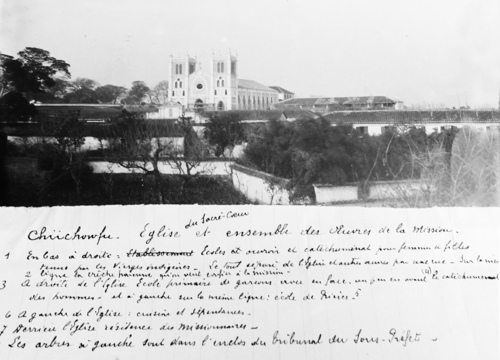 du Sacré-Cœur
Chüichowfu. Eglise et ensemble des Œuvres de la Mission.
1 En bas à droite : Etablissement Ecoles et ouvroir et catéchuménat pour femmes et filles
tenus par les Vierges indigènes. Le tout séparé de l'Eglise et autres œuvres par une rue. Sur la même
2 ligne la crèche paienne qui m'écrit à la mission.
3 A droite de l'Eglise Ecole primaire de garçons avec en face, un peu en avant (4) le catéchuménat
des hommes - et à gauche sur la même ligne : école de Prières 5
6 A gauche de l'Eglise : cuisine et dépendances.
7 Derrière l'Eglise résidence des Missionnaires -
Les arbres à gauche sont dans l'enclos du tribunal du Sous-Préfet -